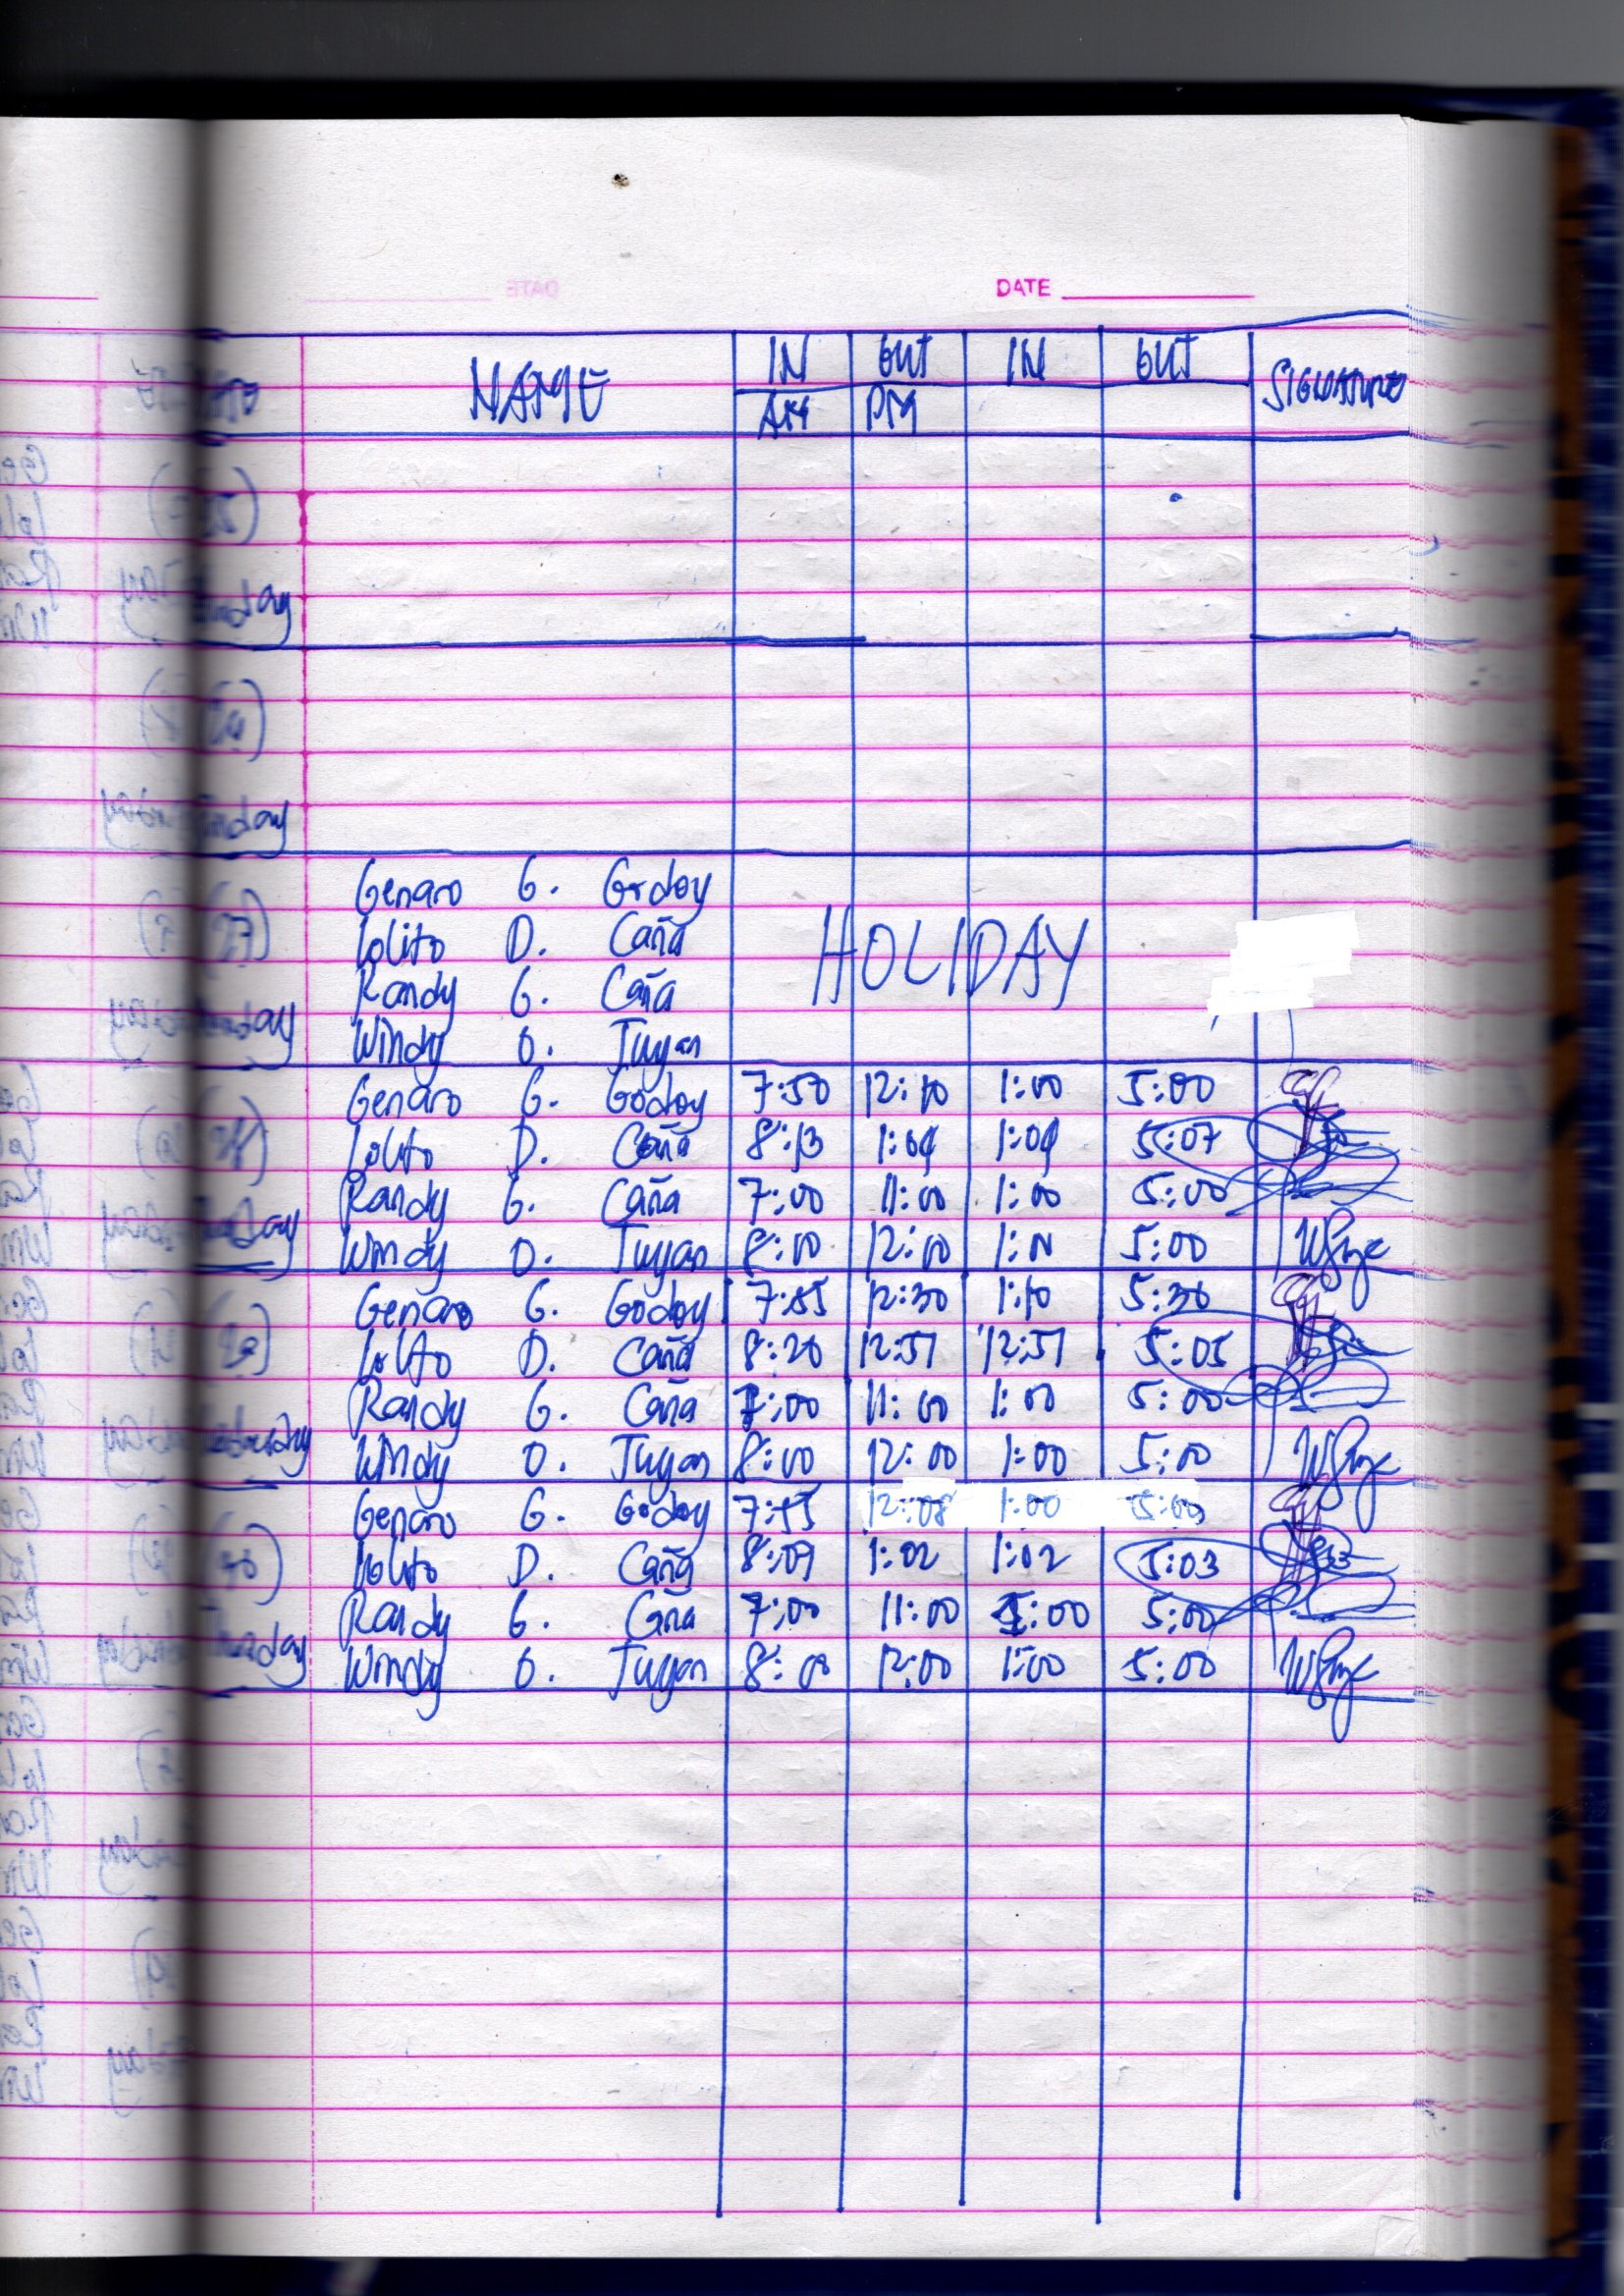 DATE
NAME IN OUT IN OUT SIGNATURE
AM PM
Sunday
Genaro G. Godoy
Lolito D. Caña HOLIDAY
Randy G. Caña
Windy O. Tuyan
Genaro G. Godoy 7:50 12:10 1:00 5:00
Lolito D. Caña 8:13 1:04 1:04 5:07
Randy G. Caña 7:00 11:00 1:00 5:00
Windy O. Tuyan 8:00 12:00 1:00 5:00
Genaro G. Godoy 7:55 12:30 1:10 5:30
Lolito D. Caña 8:20 12:51 12:51 5:05
Randy G. Caña 7:00 11:00 1:00 5:00
Windy O. Tuyan 8:00 12:00 1:00 5:00
Genaro G. Godoy 7:55 12:08 1:00 5:00
Lolito D. Caña 8:09 1:02 1:02 5:03
Randy G. Caña 7:00 11:00 1:00 5:00
Windy O. Tuyan 8:00 12:00 1:00 5:00